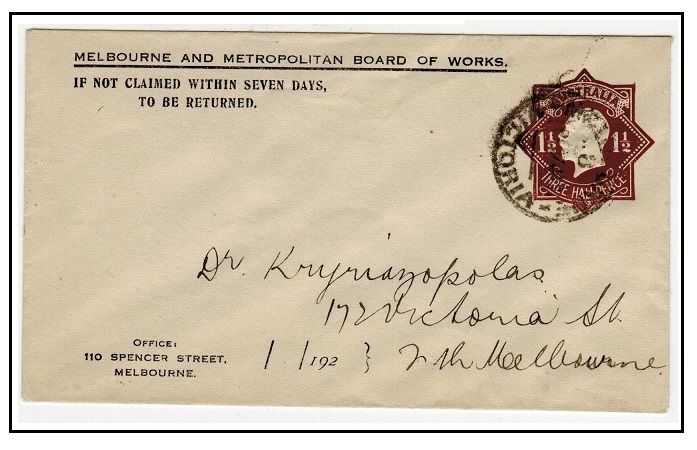 MELBOURNE AND METROPOLITAN BOARD OF WORKS.
IF NOT CLAIMED WITHIN SEVEN DAYS,
TO BE RETURNED.
AUSTRALIA
1½ 1½
THREE HALFPENCE
VICTORIA
Dr. Kryriazopolas
172 Victoria St.
OFFICE:
110 SPENCER STREET,
MELBOURNE.
/ /192 } Nth Melbourne